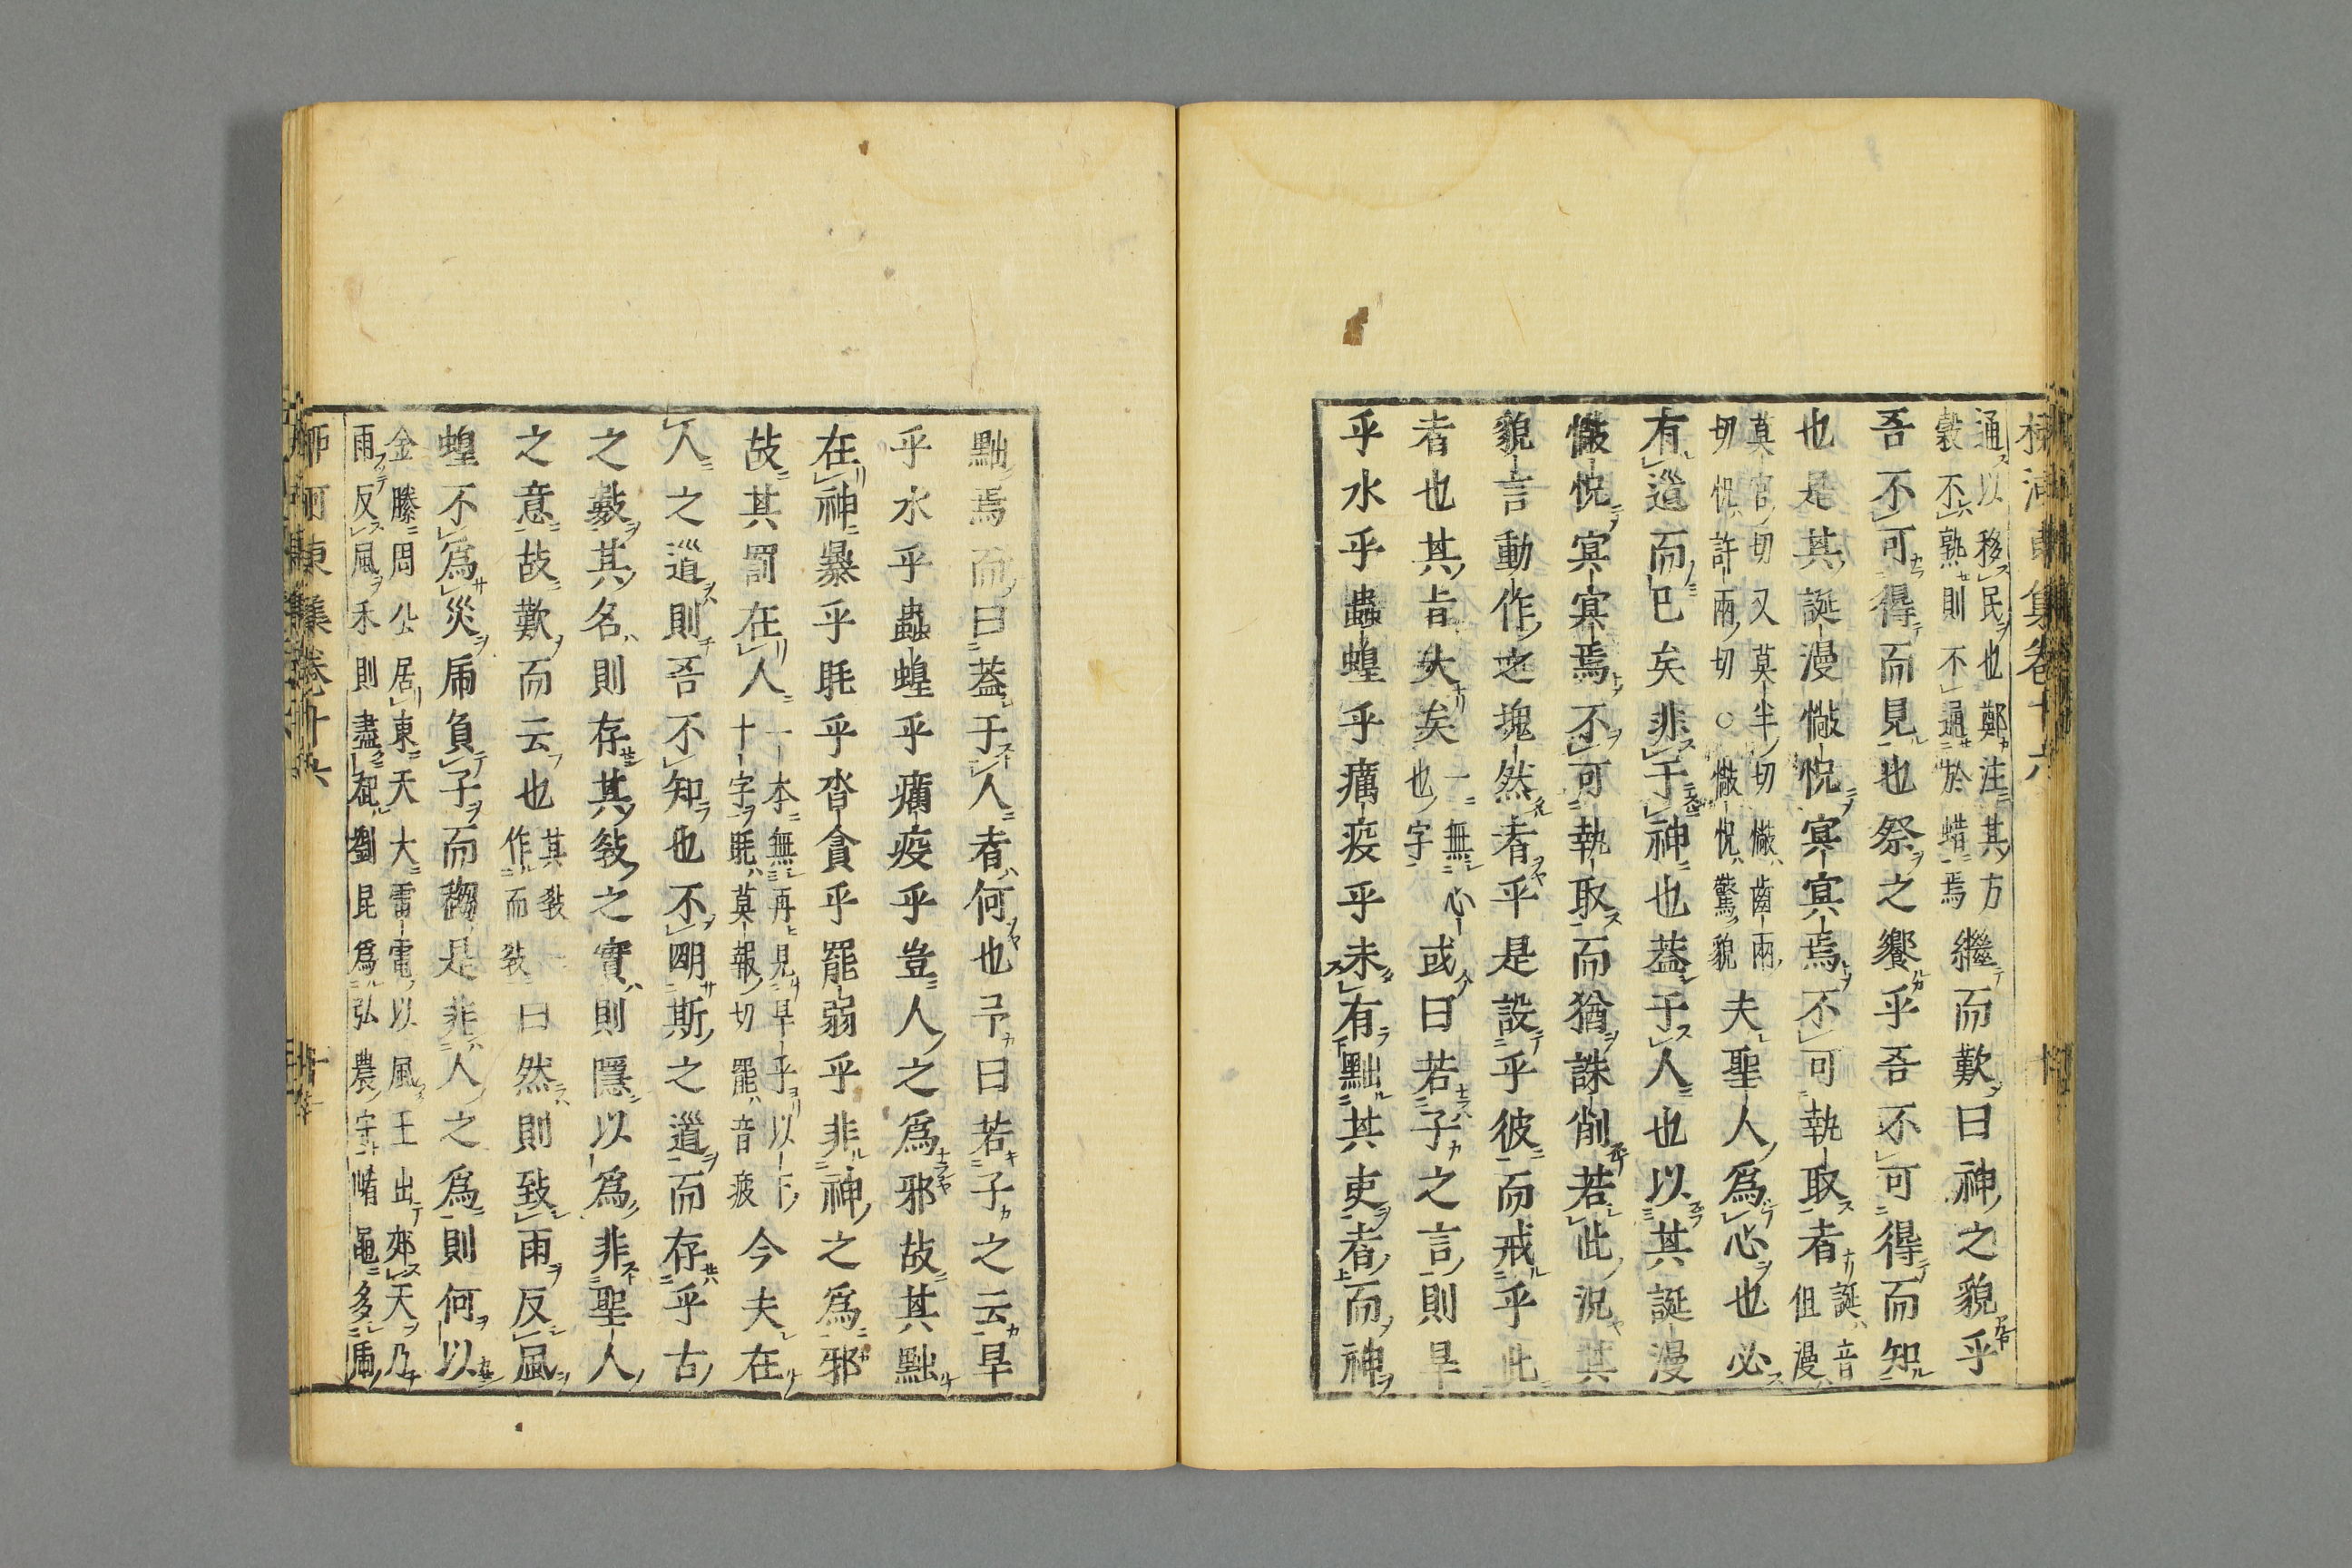 通以移民也鄭注其方
穀不熟則不通於蜡焉
繼而歎曰神之貌乎
吾不可得而見也祭之饗乎吾不可得而知
也是其誕漫惝怳冥冥焉不可執取者
誕音
但漫
莫官切又莫半切惝齒兩
切怳許兩切○惝怳驚貌
夫聖人爲心也必
有道而已矣非于神也蓋于人也以其誕漫
惝怳冥冥焉不可執取而猶誅削若此況其
貌言動作之塊然者乎是設乎彼而戒乎此
者也其旨大矣
一無心
也字
或曰若子之言則旱
乎水乎蟲蝗乎癘疫乎未有黜其吏者而神
黜焉而曰蓋于人者何也予曰若子之云旱
乎水乎蟲蝗乎癘疫乎豈人之爲邪故其黜
在神暴乎眊乎沓貪乎罷弱乎非神之爲邪
故其罰在人
一本無再見旱乎以下
十字眊莫報切罷音疲
今夫在
人之道則吾不知也不明斯之道而存乎古
之數其名則存其敎之實則隱以爲非聖人
之意故歎而云也
其敎
作而敎
曰然則致雨反風
蝗不爲災虎負子而趨是非人之爲則何以
金縢周公居東天大雷電以風王出郊天乃
雨反風禾則盡起劉昆爲弘農守崤黽多虎
柳河東集卷十六